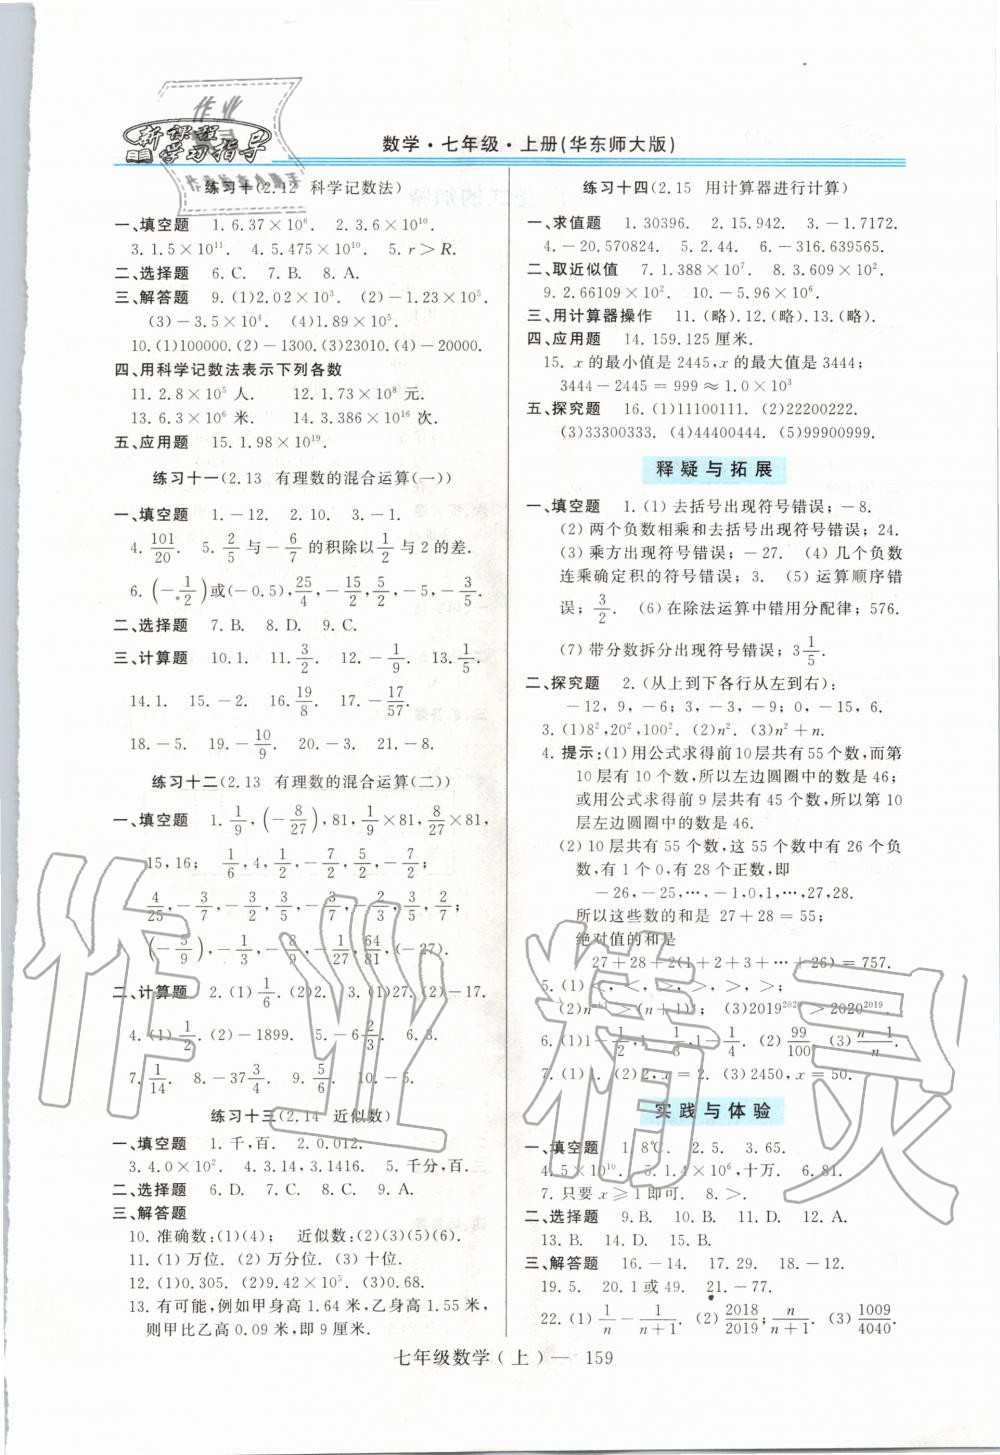 作业
新课程
学习指导
数学·七年级·上册(华东师大版)
练习十(2.12 科学记数法)
一、填空题 1.6.37×10⁶. 2.3.6×10¹⁰.
3.1.5×10¹¹. 4.5.475×10¹⁰. 5.r>R.
二、选择题 6.C. 7.B. 8.A.
三、解答题 9.(1)2.02×10³. (2)-1.23×10⁵.
(3)-3.5×10⁴. (4)1.89×10⁵.
10.(1)100000.(2)-1300.(3)23010.(4)-20000.
四、用科学记数法表示下列各数
11.2.8×10⁵ 人. 12.1.73×10⁸ 元.
13.6.3×10⁶ 米. 14.3.386×10¹⁶ 次.
五、应用题 15.1.98×10¹⁹.
练习十一(2.13 有理数的混合运算(一))
一、填空题 1.-12. 2.10. 3.-1.
4.101/20. 5.2/5与-6/7的积除以1/2与2的差.
6.(-1/2)或(-0.5),25/4,-15/2,5/2,-5,-3/5.
二、选择题 7.B. 8.D. 9.C.
三、计算题 10.1. 11.3/2. 12.-1/9. 13.1/5.
14.1. 15.-2. 16.19/8. 17.-17/57.
18.-5. 19.-10/9. 20.-3. 21.-8.
练习十二(2.13 有理数的混合运算(二))
一、填空题 1.1/9,(-8/27),81,1/9×81,8/27×81,
15,16; 1/6,4,1/2,-7/2,5/2,-7/2;
4/25,-3/7,-3/2,3/5,-3/2,2/3,3/5,2/7;
(-5/9),-1/3,-8/9,1/27,64/81,(-27).
二、计算题 2.(1)1/6.(2)2. 3.(1)27.(2)-17.
4.(1)1/2.(2)-1899. 5.-6 2/3. 6.3.
7.1/14. 8.-37 3/4. 9.5/6. 10.-5.
练习十三(2.14 近似数)
一、填空题 1.千,百. 2.0.012.
3.4.0×10². 4.3.14,3.1416. 5.千分,百.
二、选择题 6.D. 7.C. 8.C. 9.A.
三、解答题
10.准确数:(1)(4); 近似数:(2)(3)(5)(6).
11.(1)万位. (2)万分位. (3)十位.
12.(1)0.305. (2)9.42×10⁵. (3)0.68.
13.有可能,例如甲身高 1.64 米,乙身高 1.55 米,
则甲比乙高 0.09 米,即 9 厘米.
练习十四(2.15 用计算器进行计算)
一、求值题 1.30396. 2.15.942. 3.-1.7172.
4.-20.570824. 5.2.44. 6.-316.639565.
二、取近似值 7.1.388×10⁷. 8.3.609×10².
9.2.66109×10². 10.-5.96×10⁶.
三、用计算器操作 11.(略).12.(略).13.(略).
四、应用题 14.159.125 厘米.
15.x 的最小值是 2445,x 的最大值是 3444;
3444-2445=999≈1.0×10³
五、探究题 16.(1)11100111. (2)22200222.
(3)33300333. (4)44400444. (5)99900999.
释疑与拓展
一、填空题 1.(1)去括号出现符号错误;-8.
(2)两个负数相乘和去括号出现符号错误;24.
(3)乘方出现符号错误;-27. (4)几个负数
连乘确定积的符号错误;3. (5)运算顺序错
误;3/2. (6)在除法运算中错用分配律;576.
(7)带分数拆分出现符号错误;3 1/5.
二、探究题 2.(从上到下各行从左到右):
-12,9,-6;3,-3,-9;0,-15,6.
3.(1)8²,20²,100². (2)n². (3)n²+n.
4.提示:(1)用公式求得前 10 层共有 55 个数,而第
10 层有 10 个数,所以左边圆圈中的数是 46;
或用公式求得前 9 层共有 45 个数,所以第 10
层左边圆圈中的数是 46.
(2)10 层共有 55 个数,这 55 个数中有 26 个负
数,有 1 个 0,有 28 个正数,即
-26,-25,…,-1,0,1,…,27,28.
所以这些数的和是 27+28=55;
绝对值的和是
27+28+2(1+2+3+…+26)=757.
5.(1)<,<,>,>,>;
(2) (3)2019²⁰²⁰>2020²⁰¹⁹.
6.(1)1-1/2,1/2-1/3,1/3-1/4. (2)99/100. (3)n-1/n.
7.(1) (2)2,x=2. (3)2450,x=50.
实践与体验
一、填空题 1.8℃. 2.5. 3.65.
4.5×10¹⁰. 5.1.4×10⁶,十万. 6.81.
7.只要 x≥1 即可. 8.>.
二、选择题 9.B. 10.B. 11.D. 12.A.
13.B. 14.D. 15.B.
三、解答题 16.-14. 17.29. 18.-12.
19.5. 20.1 或 49. 21.-77.
22.(1)1/n-1/n+1. (2)2018/2019;n/n+1. (3)1009/4040.
七年级数学(上)— 159
作业精灵